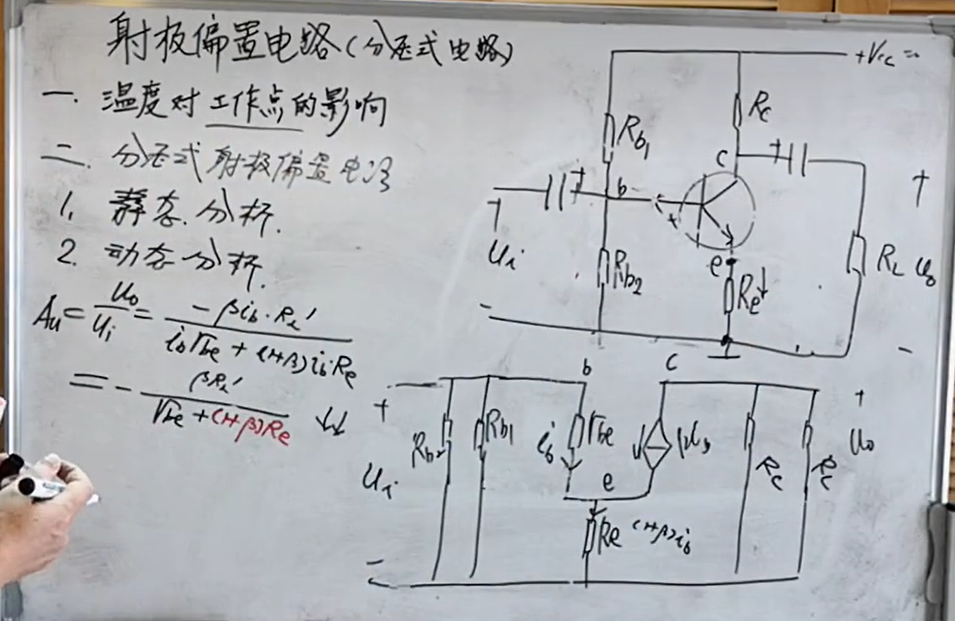 射极偏置电路(分压式电路)
一. 温度对工作点的影响
二. 分压式射极偏置电路
1. 静态分析.
2. 动态分析.
Au = Uo/Ui = -βib·RL'/(ibrbe + (1+β)ibRe)
= - βRL'/(rbe + (1+β)Re) ↓↓
+Vcc =
Rb1
Rc
c
+
b
+
+
+
Ui
Rb2
e
Re
RL
Uo
-
-
b
c
+
+
Rb2
Rb1
ib
rbe
βib
Rc
Rc
Uo
Ui
e
Re
(1+β)ib
-